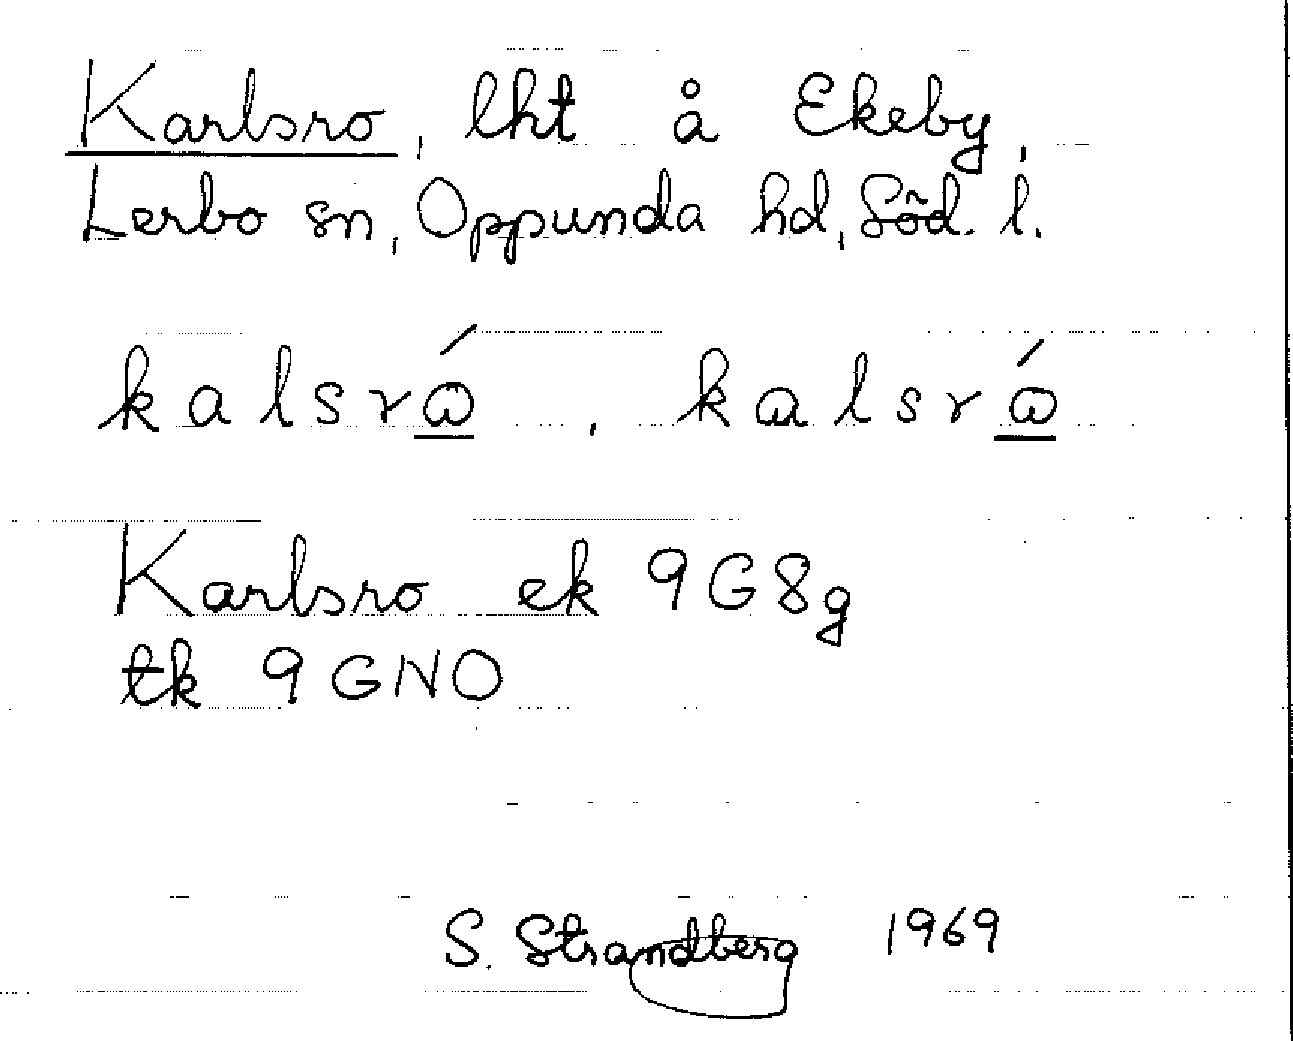 Karlsro, lht å Ekeby,
Lerbo sn, Oppunda hd, Söd. l.
kalsrώ, kαlsrώ
Karlsro ek 9G8g
tk 9GNO
S. Strandberg 1969